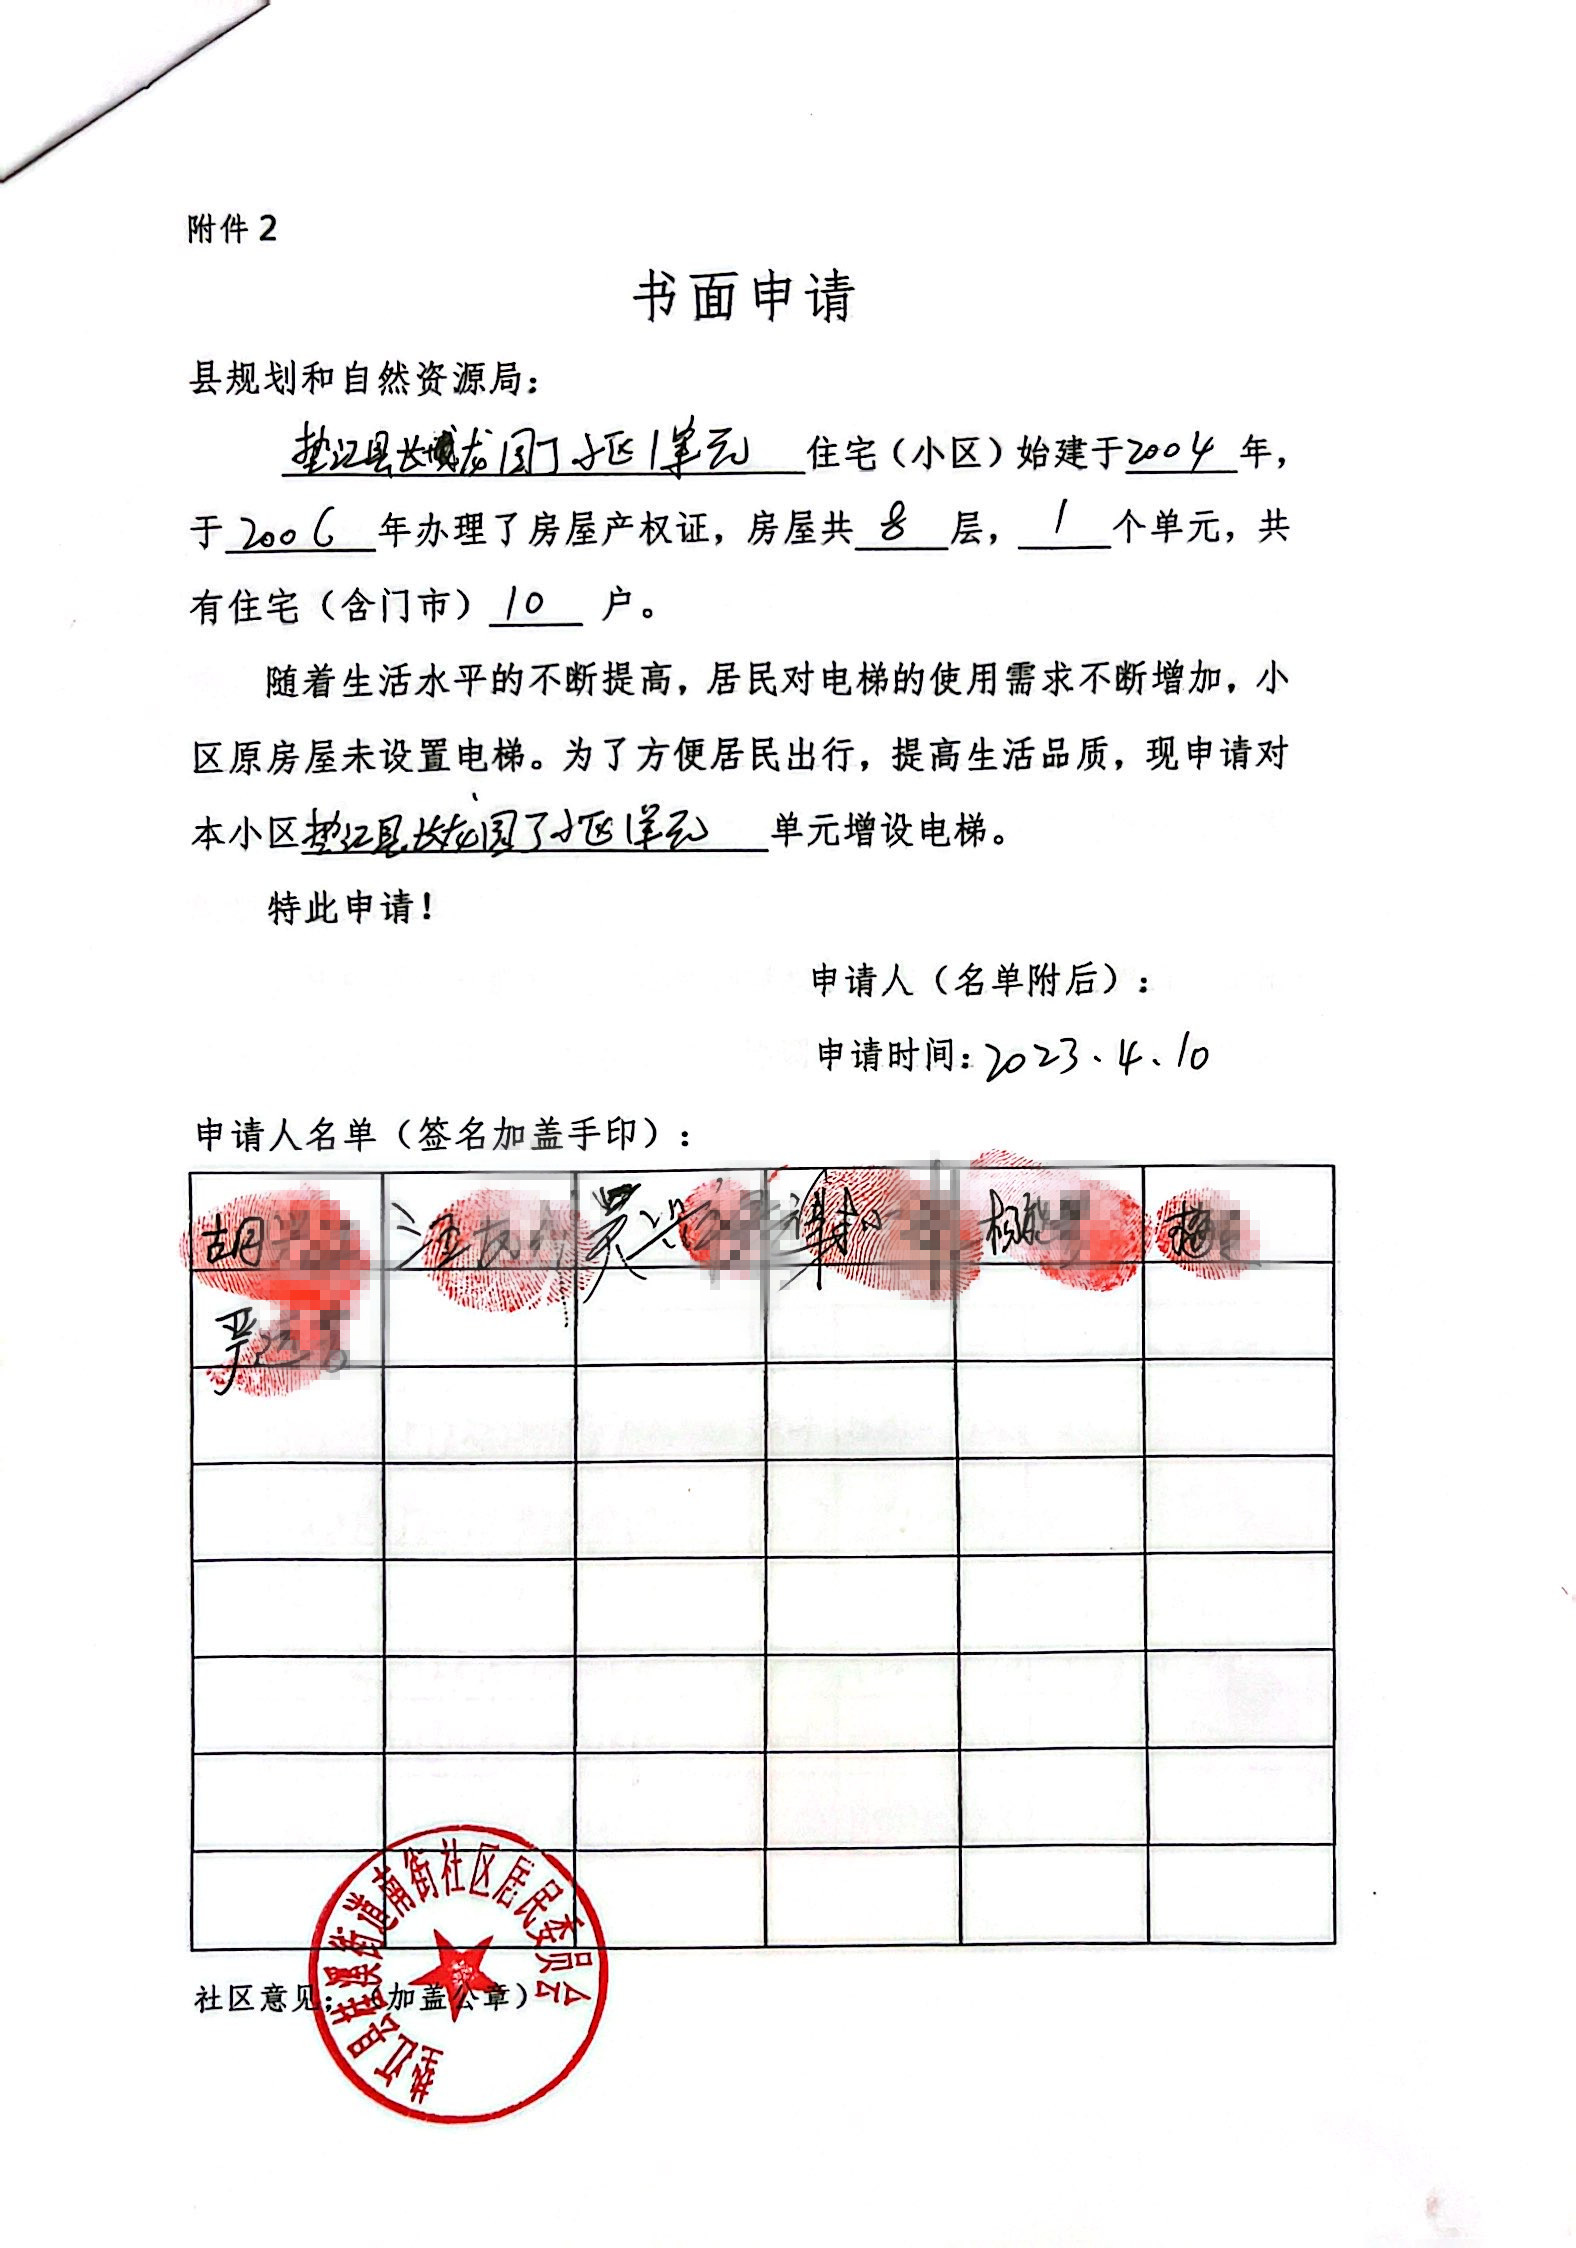 附件2
书面申请
县规划和自然资源局：
垫江县长城龙园丁小区1单元住宅（小区）始建于2004年，
于2006年办理了房屋产权证，房屋共8层，1个单元，共
有住宅（含门市）10户。
随着生活水平的不断提高，居民对电梯的使用需求不断增加，小
区原房屋未设置电梯。为了方便居民出行，提高生活品质，现申请对
本小区垫江县长龙园丁小区1单元单元增设电梯。
特此申请！
申请人（名单附后）：
申请时间：2023.4.10
申请人名单（签名加盖手印）：
胡 汪 吴 谭 杨
严
社区意见：（加盖公章）
垫江县桂溪街道南街社区居民委员会